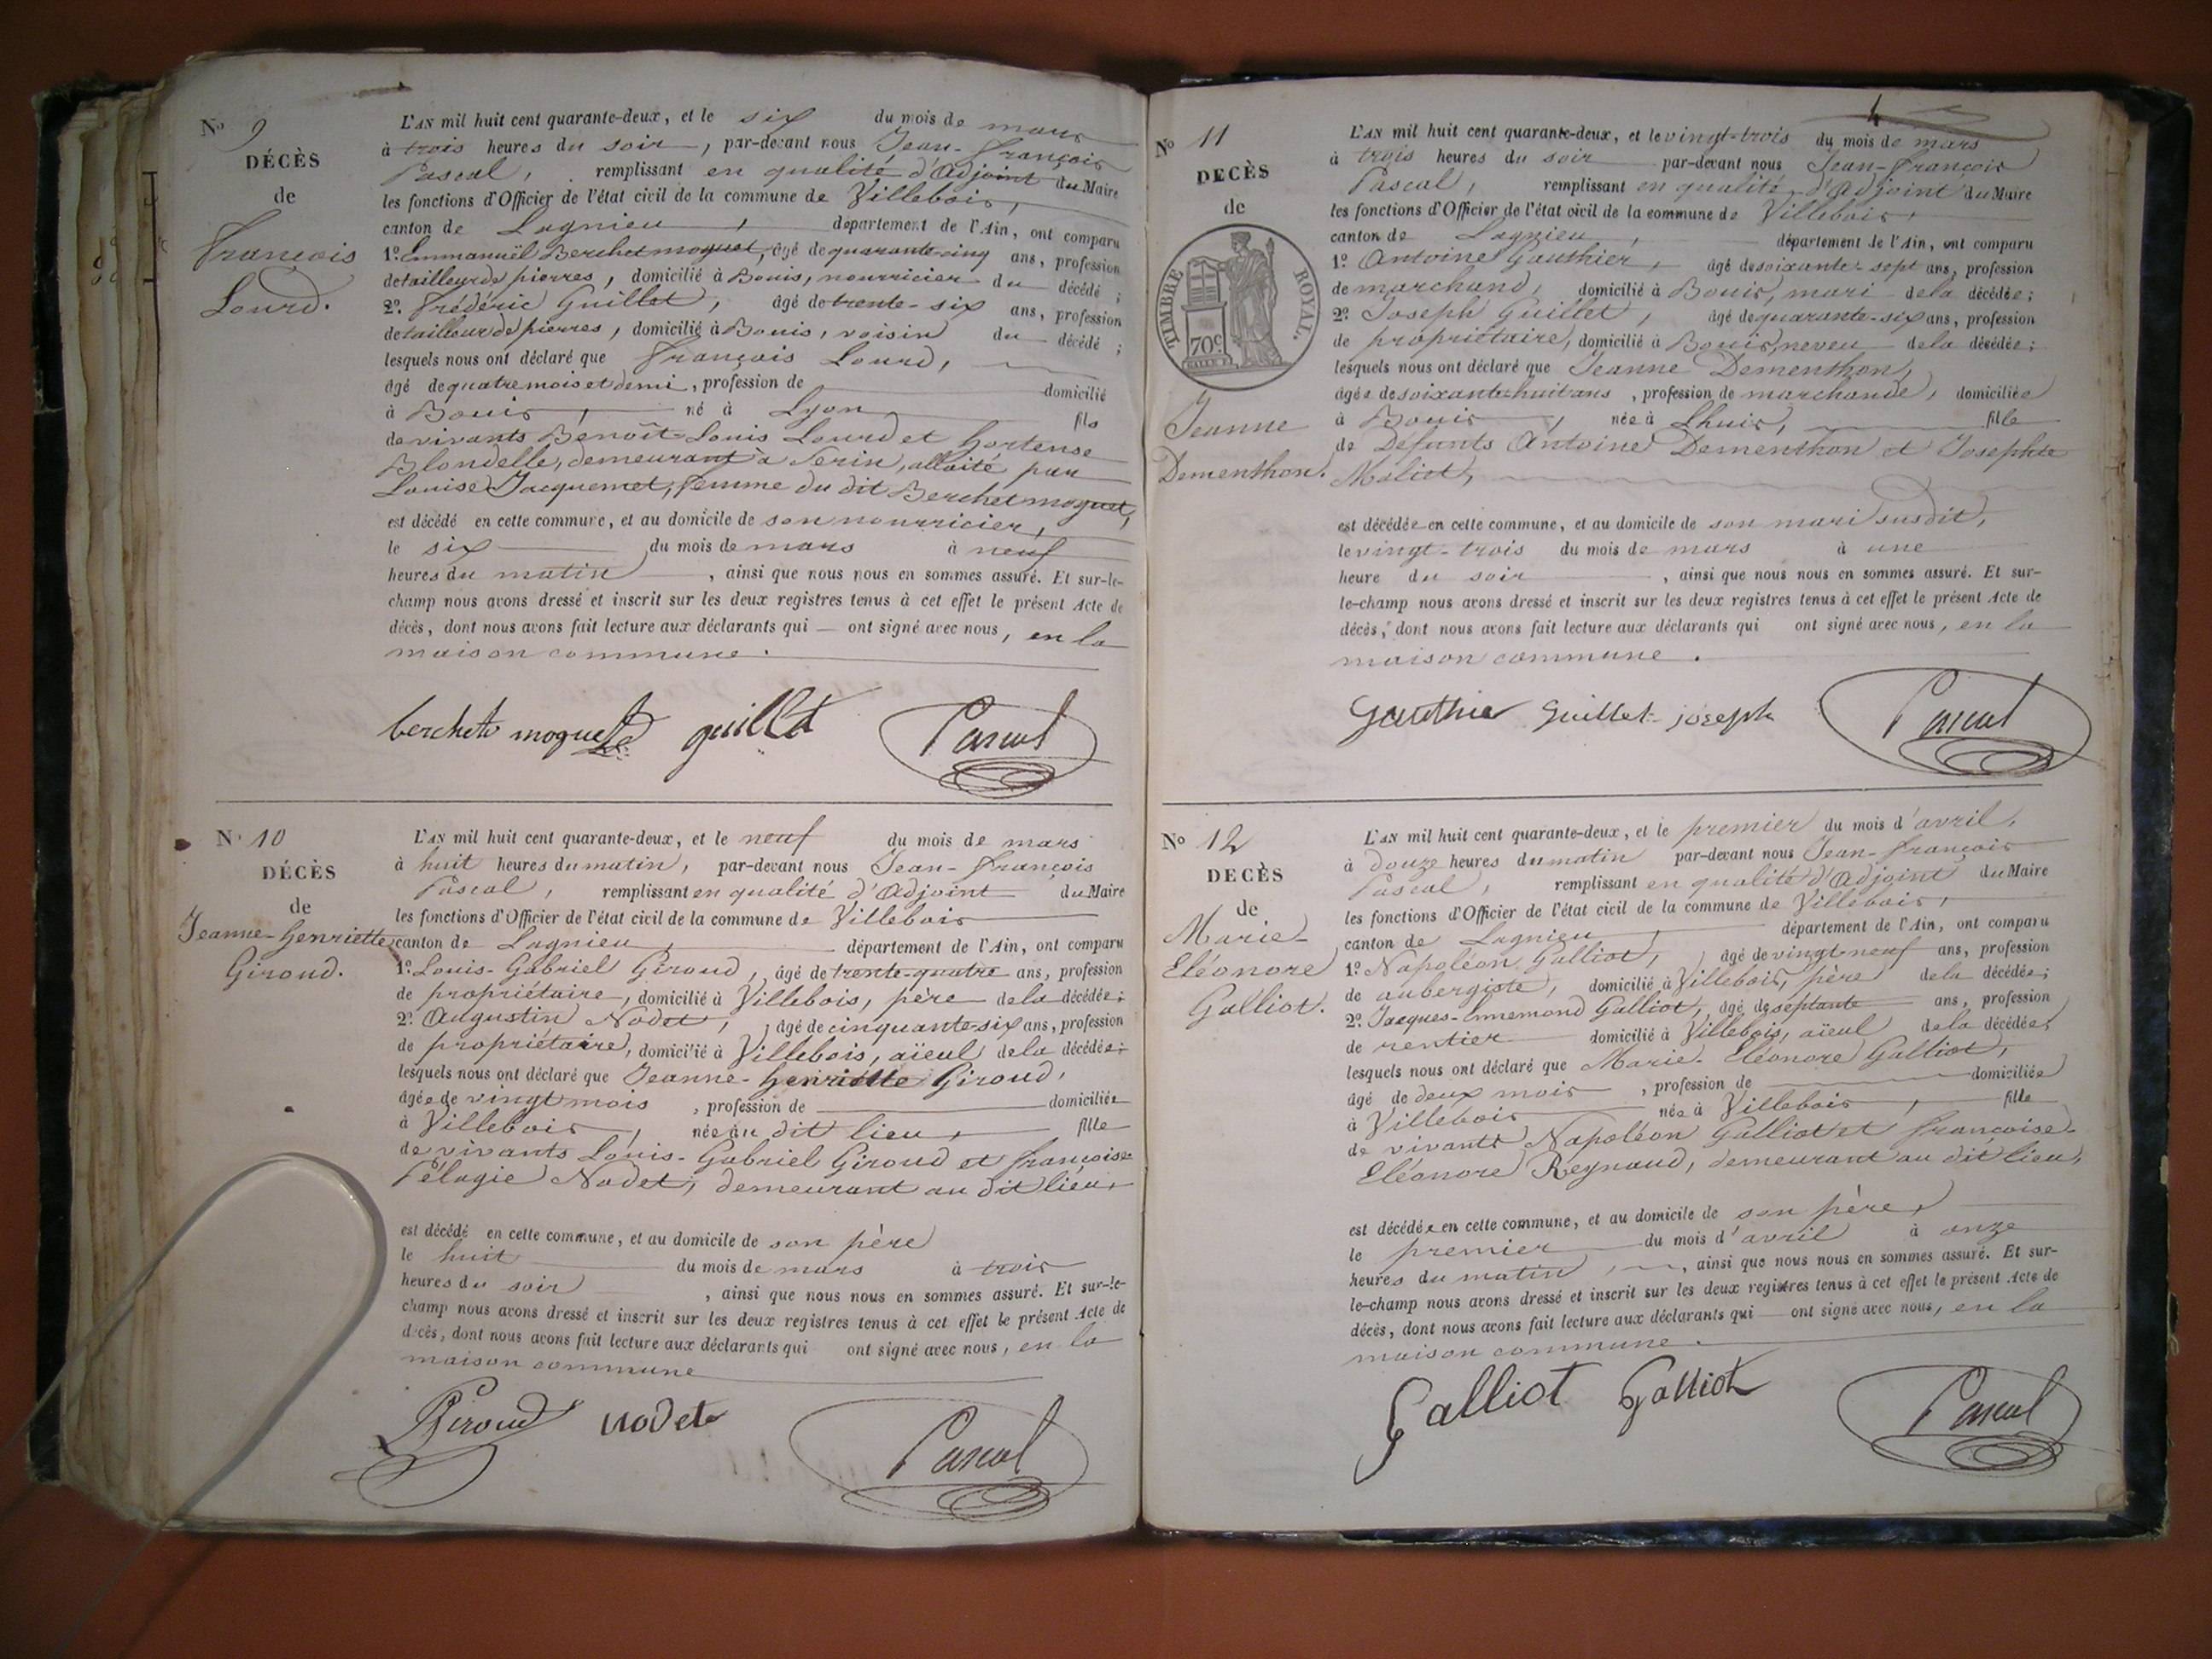 Nº 9
DÉCÈS
de
François
Lourd.
L'AN mil huit cent quarante-deux, et le six du mois de mars
à trois heures du soir, par-devant nous Jean-François
Pascal, remplissant en qualité d'Adjoint du Maire
les fonctions d'Officier de l'état civil de la commune de Villebois,
canton de Lagnieu, département de l'Ain, ont comparu
1º Emmanuël Berchet moguet, âgé de quarante-cinq ans, profession
de tailleur de pierres, domicilié à Bouis, nourricier du décédé;
2º Frédéric Guillet, âgé de trente-six ans, profession
de tailleur de pierres, domicilié à Bouis, voisin du décédé;
lesquels nous ont déclaré que François Lourd,
âgé de quatre mois et demi, profession de domicilié
à Bouis, né à Lyon fils
de vivants Benoît-Louis Lourd et Hortense
Blondelle, demeurant à Serin, allaité par
Louise Jacquemet, femme du dit Berchet moguet,
est décédé en cette commune, et au domicile de son nourricier,
le six du mois de mars à neuf
heures du matin, ainsi que nous nous en sommes assuré. Et sur-le-
champ nous avons dressé et inscrit sur les deux registres tenus à cet effet le présent Acte de
décès, dont nous avons fait lecture aux déclarants qui ont signé avec nous, en la
maison commune.
guillet Pascal
Nº 10
DÉCÈS
de
Jeanne-Henriette
Giroud.
L'AN mil huit cent quarante-deux, et le neuf du mois de mars
à huit heures du matin, par-devant nous Jean-François
Pascal, remplissant en qualité d'Adjoint du Maire
les fonctions d'Officier de l'état civil de la commune de Villebois
canton de Lagnieu, département de l'Ain, ont comparu
1º Louis-Gabriel Giroud, âgé de trente-quatre ans, profession
de propriétaire, domicilié à Villebois, père de la décédée;
2º Augustin Nodet, âgé de cinquante-six ans, profession
de propriétaire, domicilié à Villebois, aïeul de la décédée;
lesquels nous ont déclaré que Jeanne-Henriette Giroud,
âgée de vingt mois, profession de domiciliée
à Villebois, née au dit lieu, fille
de vivants Louis-Gabriel Giroud et Françoise-
Pélagie Nodet, demeurant au dit lieu,
est décédé en cette commune, et au domicile de son père
le huit du mois de mars à trois
heures du soir, ainsi que nous nous en sommes assuré. Et sur-le-
champ nous avons dressé et inscrit sur les deux registres tenus à cet effet le présent Acte de
décès, dont nous avons fait lecture aux déclarants qui ont signé avec nous, en la
maison commune
Giroud Nodet Pascal
4
Nº 11
DÉCÈS
de
TIMBRE ROYAL.
70c
Jeanne
Dementhon.
L'AN mil huit cent quarante-deux, et le vingt-trois du mois de mars
à trois heures du soir par-devant nous Jean-François
Pascal, remplissant en qualité d'Adjoint du Maire
les fonctions d'Officier de l'état civil de la commune de Villebois,
canton de Lagnieu, département de l'Ain, ont comparu
1º Antoine Gauthier, âgé de soixante-sept ans, profession
de marchand, domicilié à Bouis, mari de la décédée;
2º Joseph Guillet, âgé de quarante-six ans, profession
de propriétaire, domicilié à Bouis, neveu de la décédée;
lesquels nous ont déclaré que Jeanne Dementhon,
âgée de soixante-huit ans, profession de marchande, domiciliée
à Bouis, née à Lhuis, fille
de Défunts Antoine Dementhon et Josephte
Moliet,
est décédée en cette commune, et au domicile de son mari susdit,
le vingt-trois du mois de mars à une
heure du soir, ainsi que nous nous en sommes assuré. Et sur-
le-champ nous avons dressé et inscrit sur les deux registres tenus à cet effet le présent Acte de
décès, dont nous avons fait lecture aux déclarants qui ont signé avec nous, en la
maison commune.
Gauthier Guillet joseph Pascal
Nº 12
DECÈS
de
Marie-
Eléonore
Galliot.
L'AN mil huit cent quarante-deux, et le premier du mois d'avril,
à douze heures du matin par-devant nous Jean-François
Pascal, remplissant en qualité d'Adjoint du Maire
les fonctions d'Officier de l'état civil de la commune de Villebois,
canton de Lagnieu, département de l'Ain, ont comparu
1º Napoléon Galliot, âgé de vingt-neuf ans, profession
de aubergiste, domicilié à Villebois, père de la décédée;
2º Jacques-Ennemond Galliot, âgé de septante ans, profession
de rentier domicilié à Villebois, aïeul de la décédée,
lesquels nous ont déclaré que Marie-Eléonore Galliot,
âgé de deux mois, profession de domiciliée
à Villebois née à Villebois, fille
de vivants Napoléon Galliot et Françoise-
Eléonore Reynaud, demeurant au dit lieu,
est décédée en cette commune, et au domicile de son père,
le premier du mois d'avril à onze
heures du matin, ainsi que nous nous en sommes assuré. Et sur-
le-champ nous avons dressé et inscrit sur les deux registres tenus à cet effet le présent Acte de
décès, dont nous avons fait lecture aux déclarants qui ont signé avec nous, en la
maison commune.
Galliot Galliot Pascal